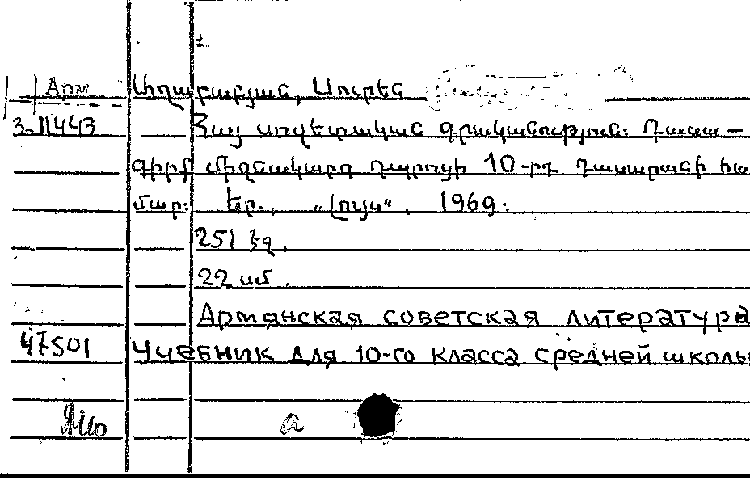 Арм Աղաբաբյան, Սուրեն
Հայ սովետական գրականություն: Դասա-
գիրք միջնակարգ դպրոցի 10-րդ դասարանի հա
մար: Եր., „Լույս“, 1969.
251 էջ.
22 սմ.
Армянская советская литература
47501 Учебник для 10-го класса средней школы
а